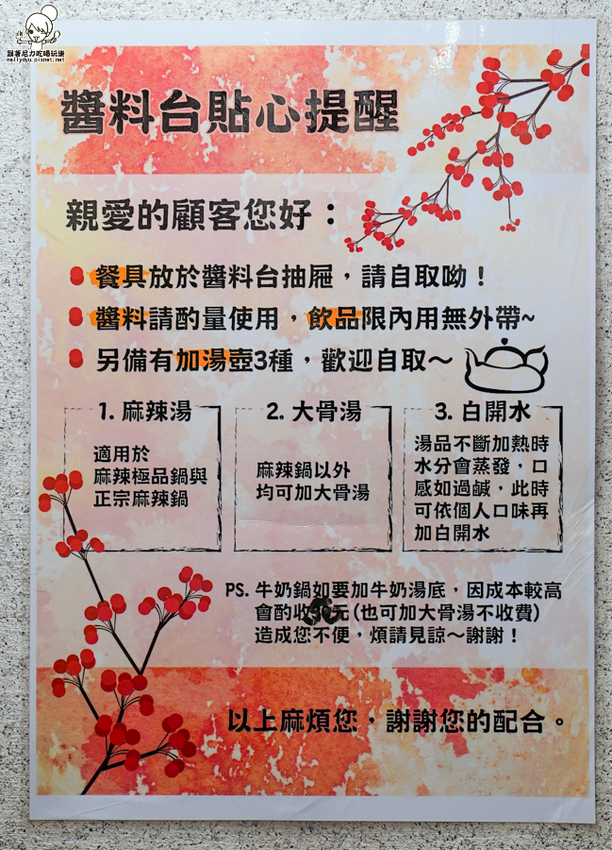 跟著尼力吃喝玩樂
nellydyu.pixnet.net
醬料台貼心提醒
親愛的顧客您好：
餐具放於醬料台抽屜，請自取呦！
醬料請酌量使用，飲品限內用無外帶~
另備有加湯壺3種，歡迎自取～
1. 麻辣湯
適用於
麻辣極品鍋與
正宗麻辣鍋
2. 大骨湯
麻辣鍋以外
均可加大骨湯
3. 白開水
湯品不斷加熱時
水分會蒸發，口
感如過鹹，此時
可依個人口味再
加白開水
PS. 牛奶鍋如要加牛奶湯底，因成本較高
會酌收元(也可加大骨湯不收費)
造成您不便，煩請見諒～謝謝！
以上麻煩您，謝謝您的配合。